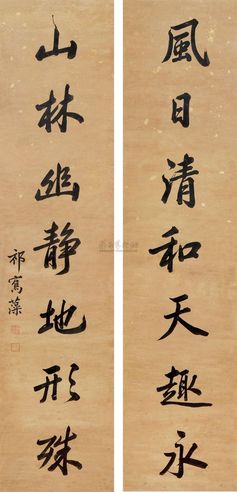 風日清和天趣永
山林幽静地形殊
祁寯藻